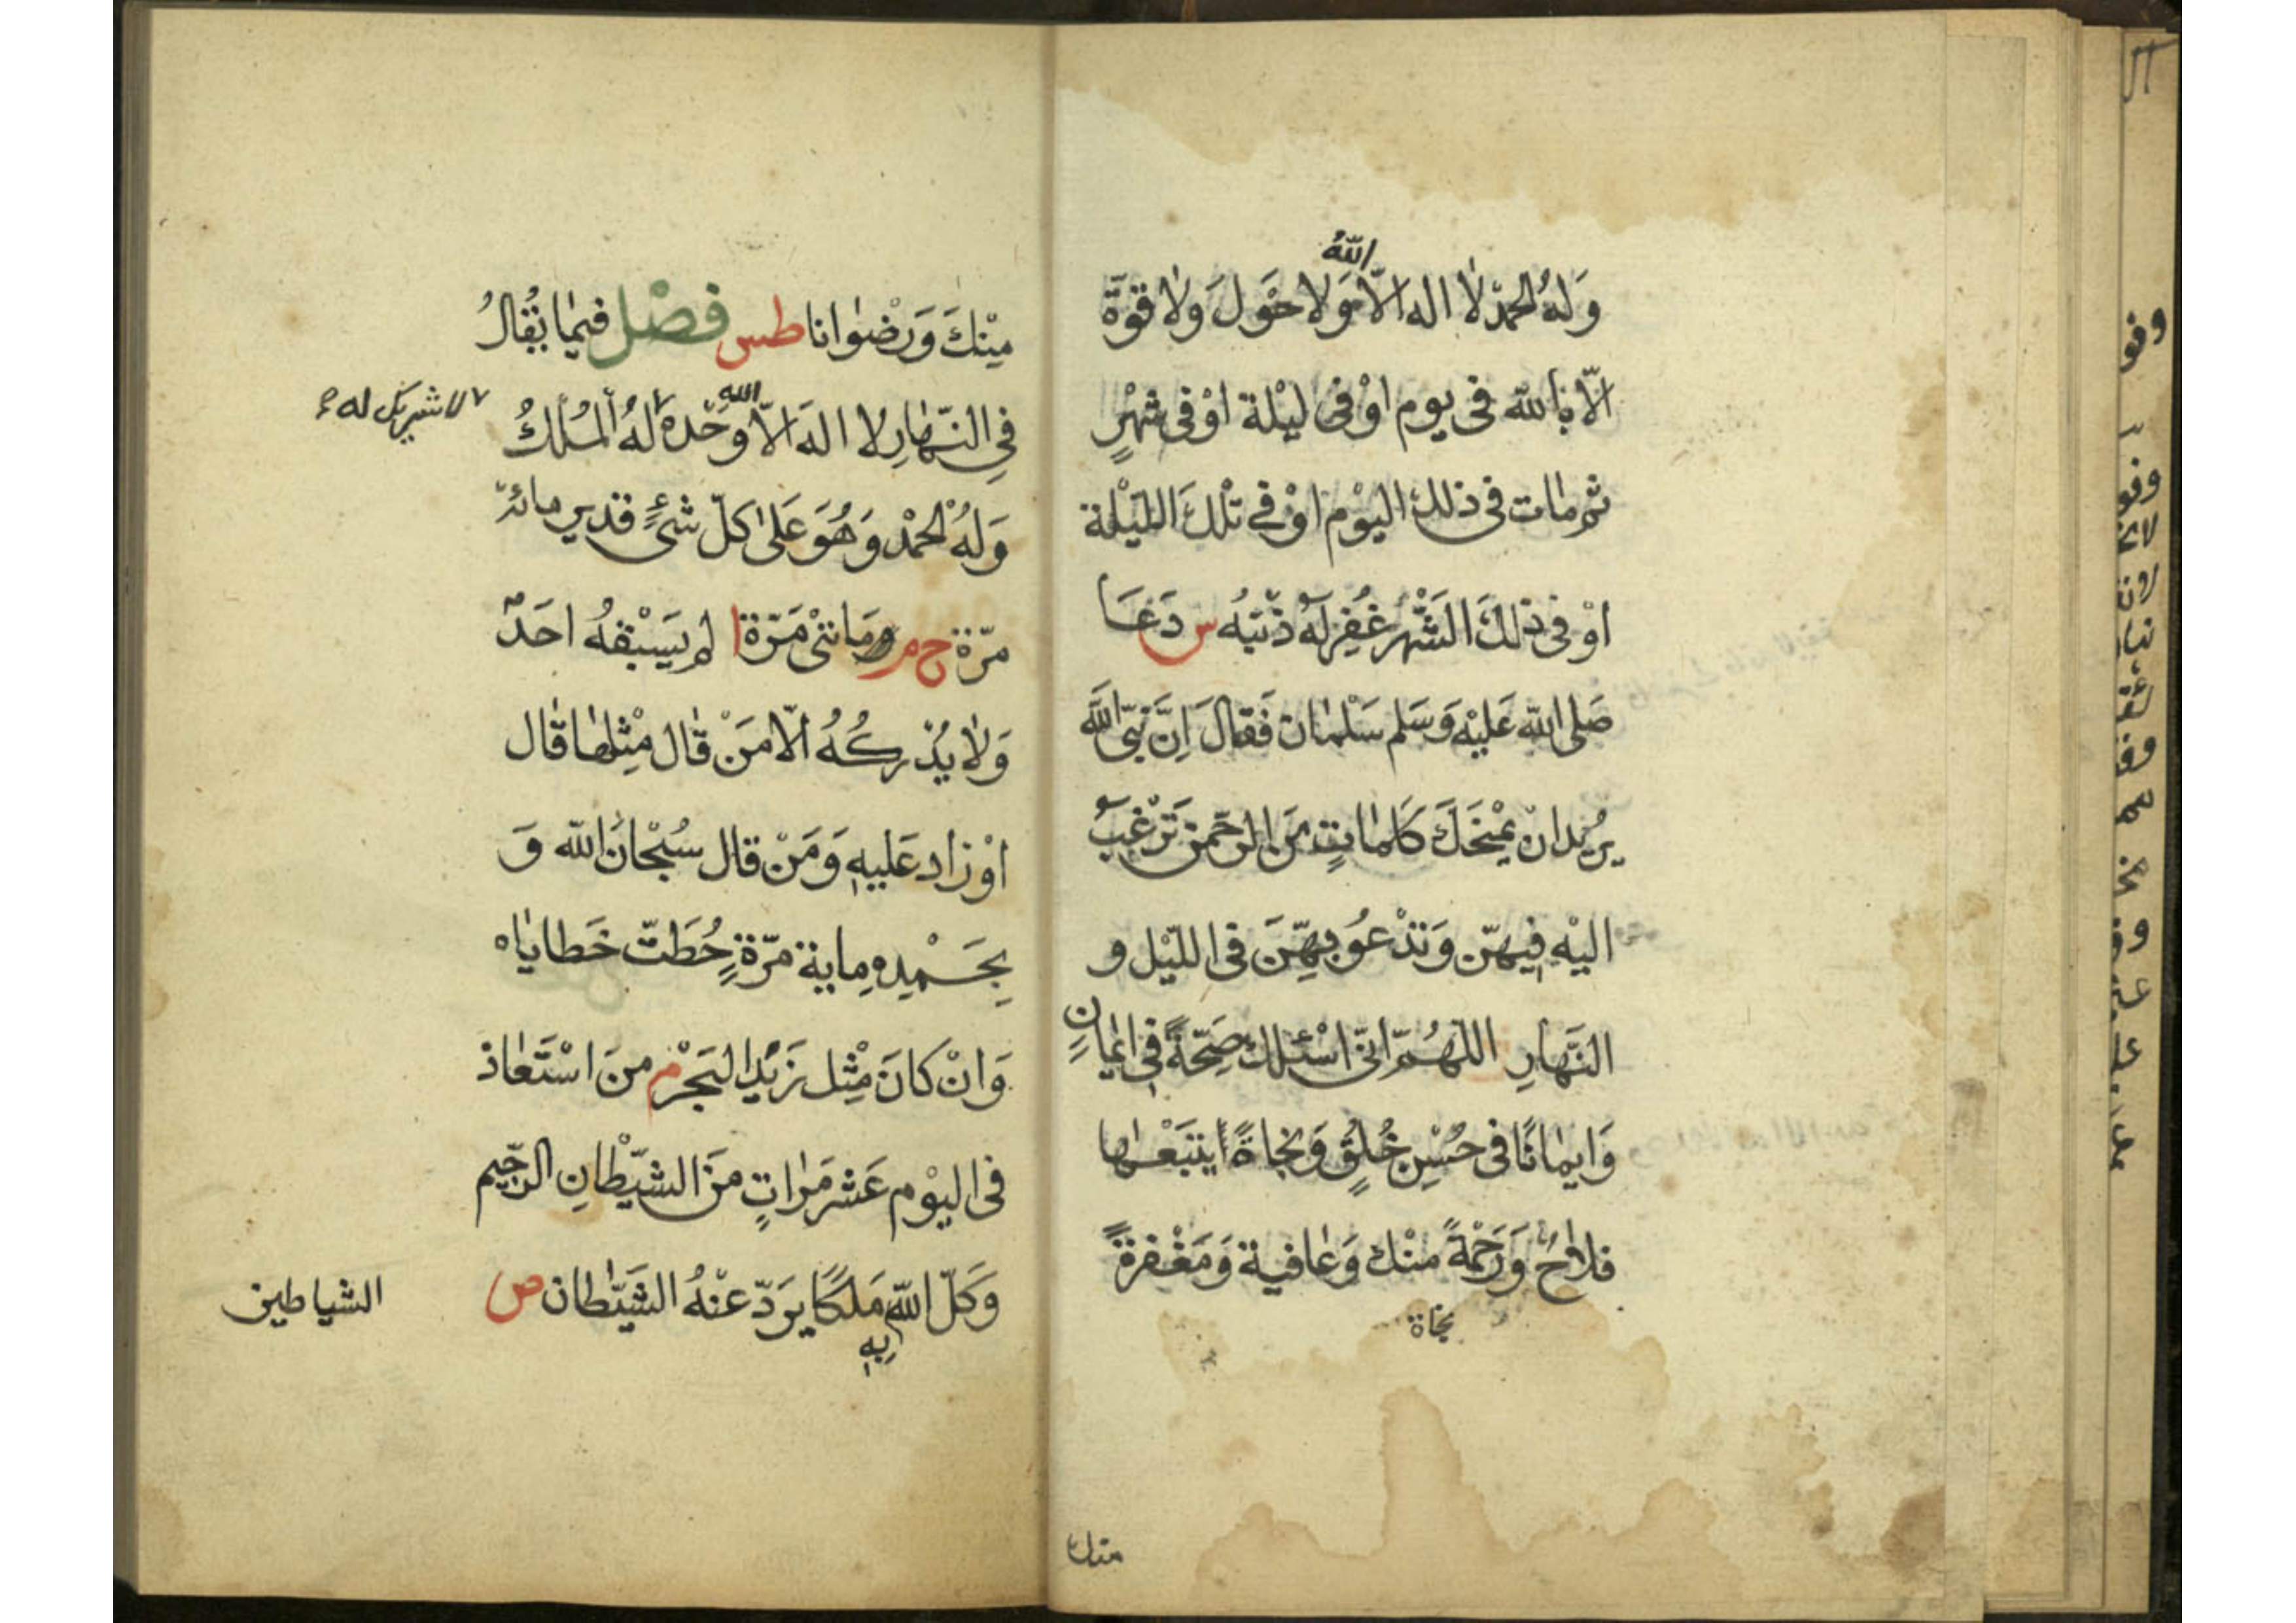 الله
وَلهُ الحمدُ لا اله الاّ وَلا حَوَلَ وَلا قوّة
الاّ بالله فى يوم اوْ فى ليْلة اوْ فى شهْرٍ
ثم مات فى ذلك اليوْم اوْ فى تلْكَ الليْلة
اوْ فى ذلكَ الشَّهْر غُفِرلَهُ ذنبُه س دَعَا
صَلى الله عَليْه وَسَلم سَلْمان فَقالَ اِنَّ نبىّ اللهَ
يرُيدان يمْنحَكَ كَلماتٍ مَن الرحَّمن تَرْغبُ
اليْهِ فيهنّ وَتدْعوُ بهِنّ فى الليْل و
النَهارِ اللهُمّ انى اسْئلك صَحّةً فى ايمانٍ
وَايمانًا فى حُسْنِ خُلقٍ وَنجاةً يتبَعْها
فلاحٌ وَرَحْمةً منْك وَعافية وَمَغْفرةً
نجاة
منك
مِنْكَ وَرِضْوانا طس فصْل فيما يُقالُ
فى النّهارِ لا الهَ الاّ الله وحْدهُ لهُ المُلكُ
لا شريك له
وَلهُ الحمْد وَهُوَ عَلى كلّ شىءٍ قدير مائة
مرّة خ م وَمائتىْ مَرّة ا لم يَسْبقهُ احَدٌ
وَلا يُدْركهُ الاّ مَنْ قال مِثْلها قال
اوْ زاد عَليهِ وَمَنْ قال سُبْحانَ الله وَ
بحَمْدِه ماية مرّةٍ حُطتّ خَطاياه
وَانْ كانَ مثْل زَبَدِ البَحْر م منَ اسْتَعاذ
فى اليوْم عَشر مَراتٍ منَ الشيْطانِ الرجيم
وَكلّ الله بِهِ مَلكًا يَردّ عنْهُ الشيْطان ص
الشياطين